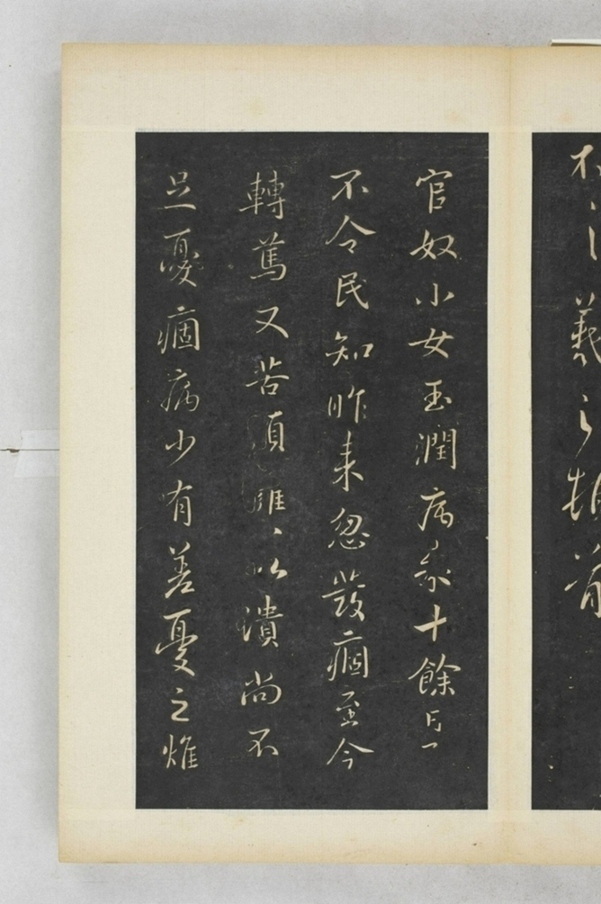 不 羲之頓首
官奴小女玉潤病來十餘日
不令民知昨來忽發痼至今
轉篤又苦頭癰、以潰尚不
足憂痼病少有差憂之燋